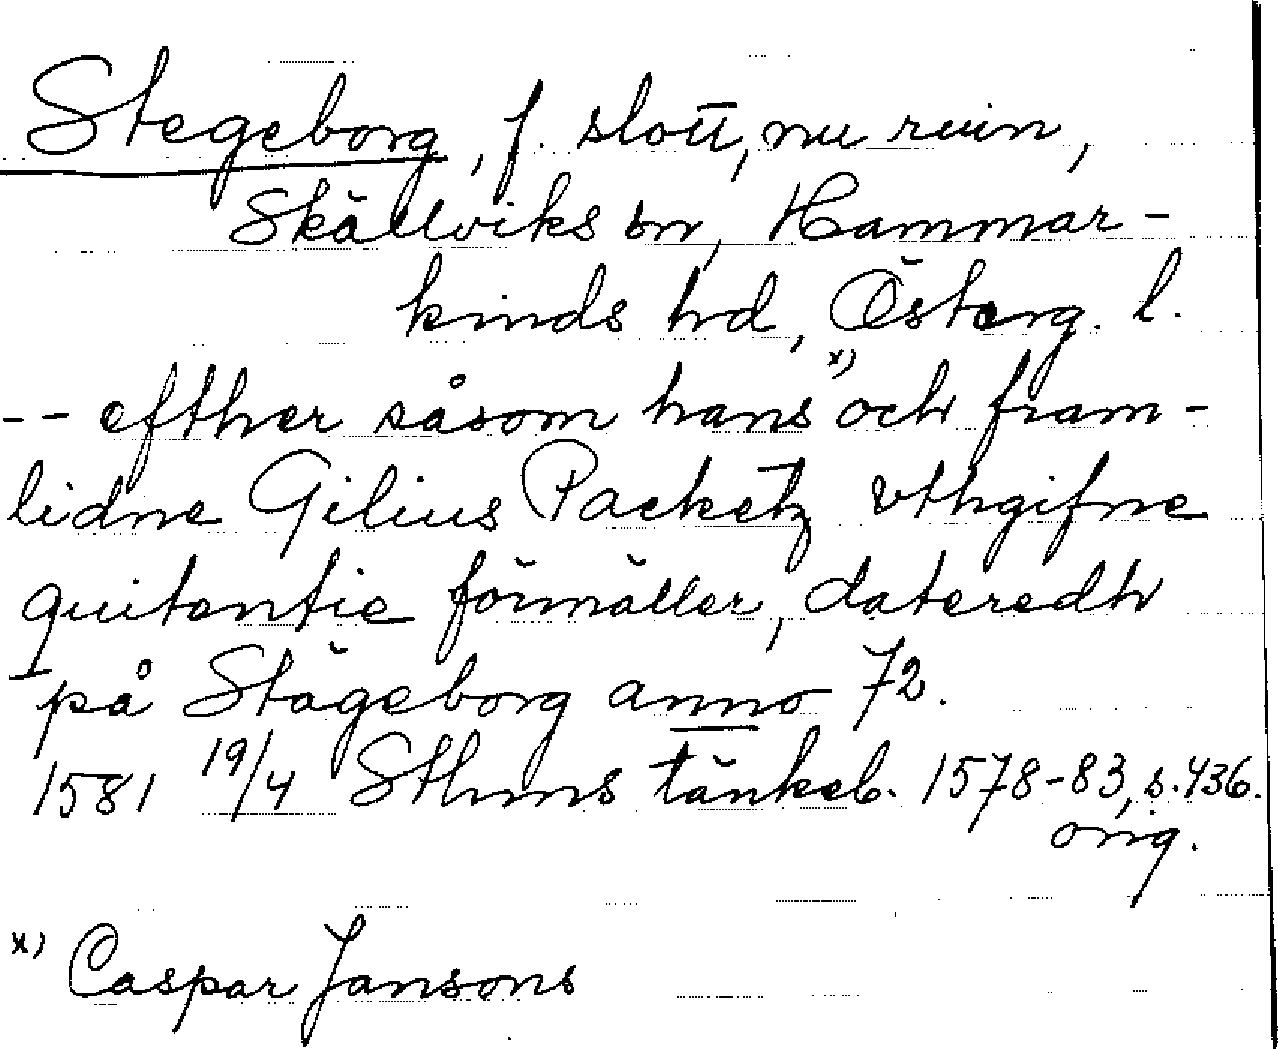 Stegeborg, f. slott, nu ruin,
Skällviks sn, Hammar-
kinds hrd, Österg. l.
-- efther såsom hans x) och fram-
lidne Gilius Packetz vthgifne
quitentie förmäller, dateredh
på Stägeborg anno 72.
1581 19/4 Sthms tänkeb. 1578-83, s. 436.
orig.
x) Caspar Jansons